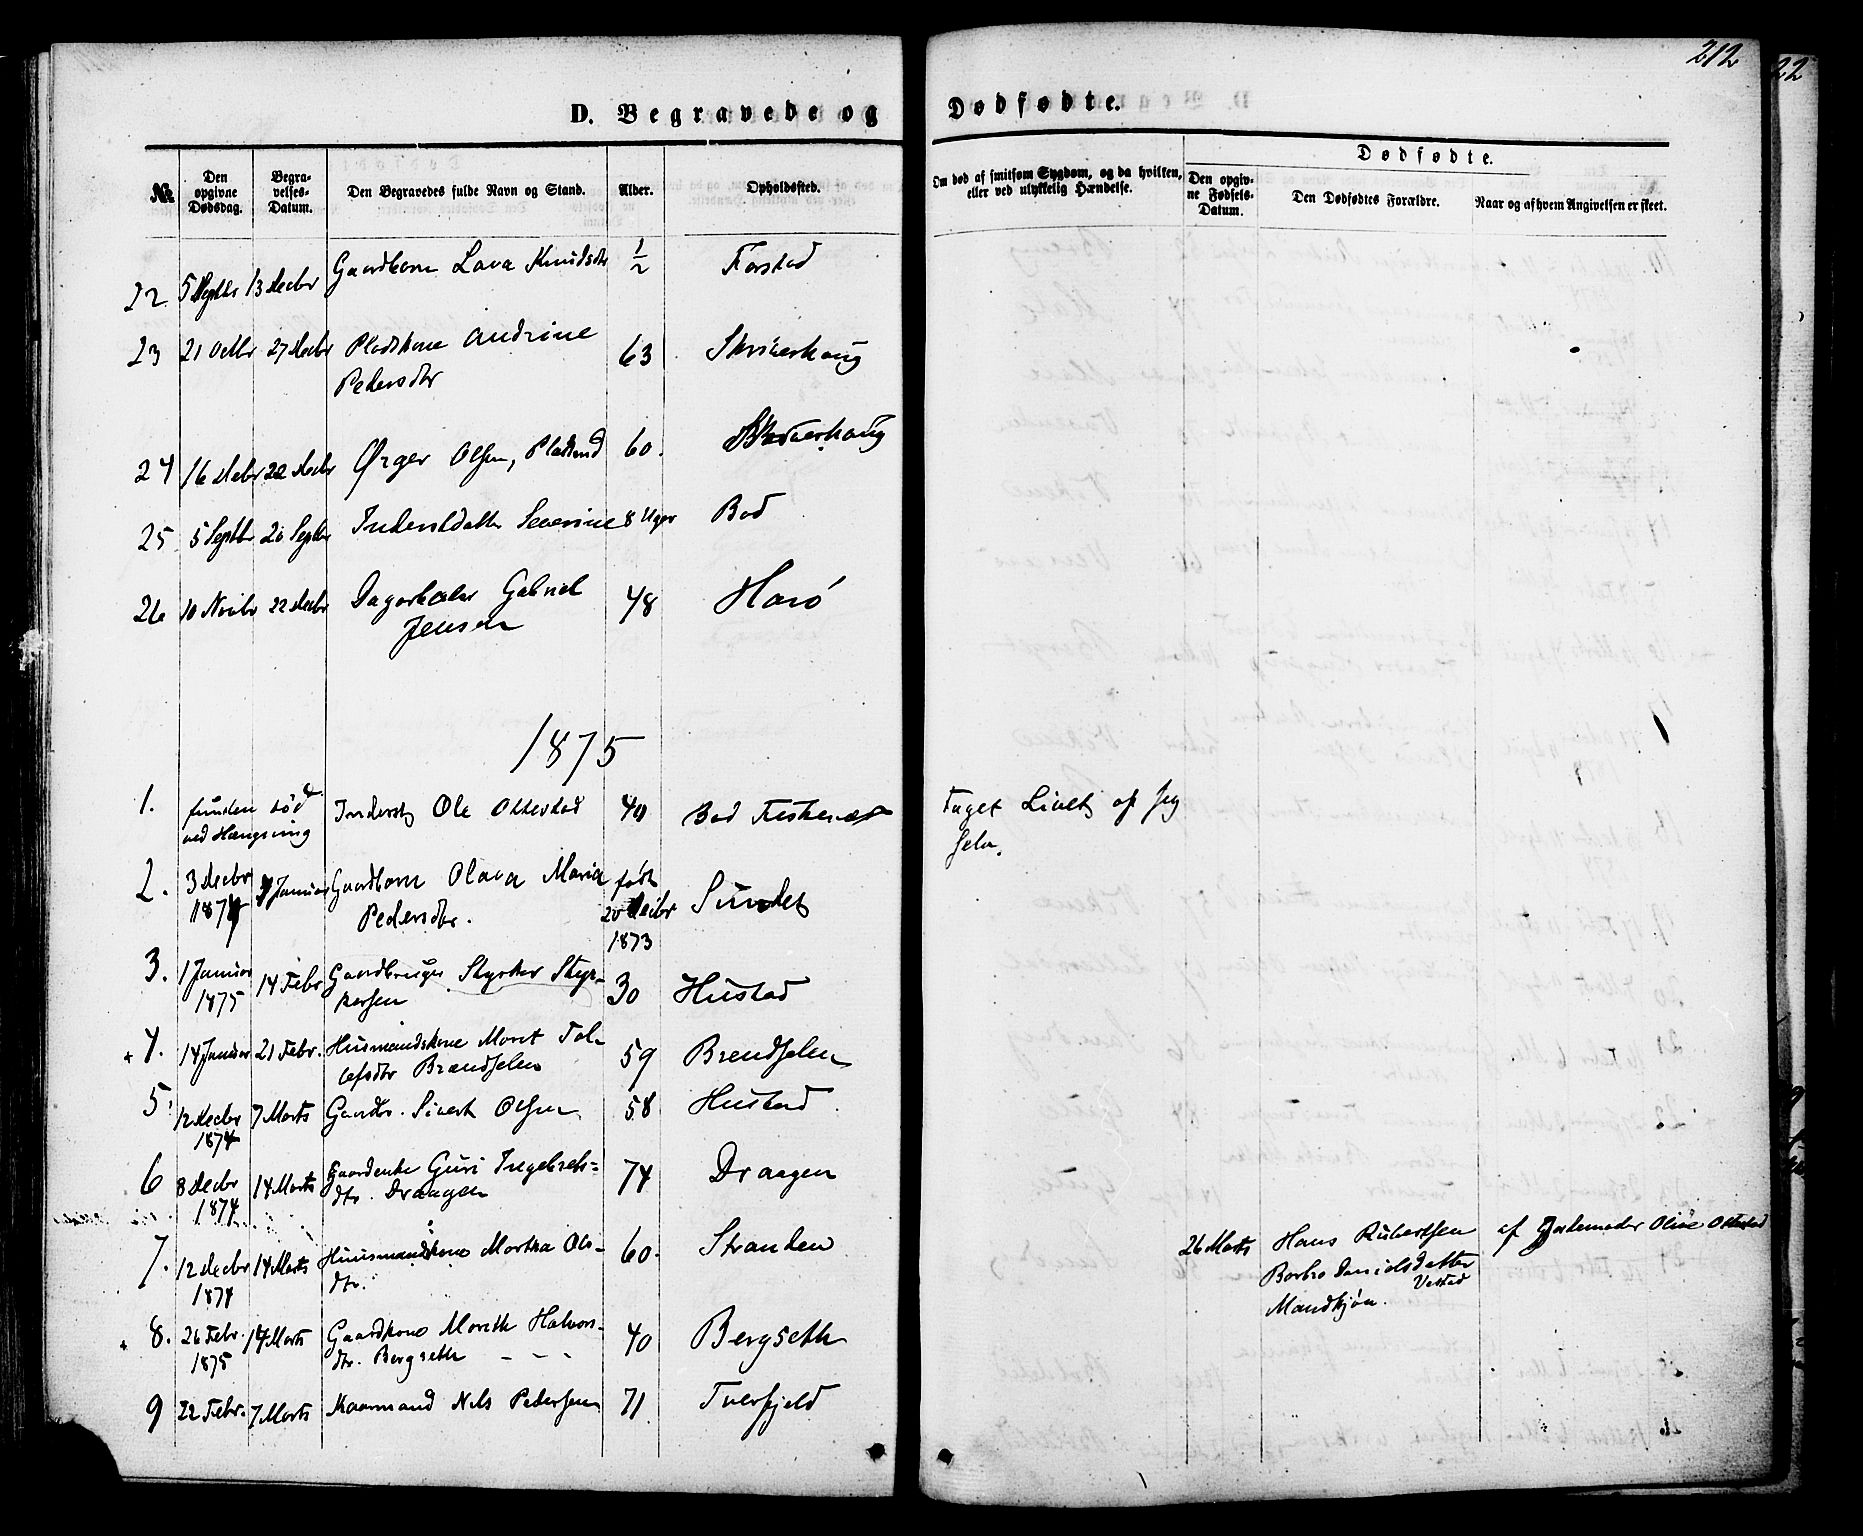 212
22
D. Begravede og Dødfødte.
№
Den opgivne Dødsdag.
Begravelses-Datum.
Den Begravedes fulde Navn og Stand.
Alder.
Opholdssted.
Om død af smitsom Sygdom, og da hvilken, eller ved ulykkelig Hændelse.
Dødfødte.
Den opgivne Fødsels-Datum.
Den Dødfødtes Forældre.
Naar og af hvem Angivelsen er skeet.
22. 13 Decbr Gaardbarn Lava Knudsdtr 1/2 Farstad
23 21 Octbr 27 Decbr Pladskone Andrine 63 Skriverhaug
Pedersdtr
24 16 Decbr 22 Decbr Ørger Olsen, Pladsmd 60. Skriverhaug
25 5 Septbr 20 Septbr Inderstdatter Severine 8 Uger Bod
26 10 Novbr 22 Decbr Gabriel 48 Harö
Jensen
1875
1. funden död Inderst Ole Ottestad 40 Bod Fiskevær Taget Livet af sig
ved Hængning selv.
2. 3 Decbr Januar Gaardbarn Olava Maria født Sundet
1874 Pedersdtr. 20 Decbr
1873
3. 1 Januar 14 Febr Gaardbruger Styrker Styr- 30 Hustad
1875 kersen
+ 4. 14 Januar 21 Febr. Husmandskone Marit Tol- 59 Brendselen
lefsdtr Brændselen
5. 12 Decbr 7 Marts Gaardbr. Sivert Olsen 58 Hustad
1874
6 8 Decbr 14 Marts Gaardenke Guri Ingebrets= 74 Draagen
1874 dtr. Draagen
7. 12 Decbr 14 Marts Huusmandskone Martha Ols- 60. Stranden 26 Marts Hans Rubertsen af Jordemoder Olive Ottestad
1874 dtr. Barbro Danielsdatter
Vestad
Mandkjøn.
+ 8. 26 Febr. 14 Marts Gaardkone Marith Halvors- 40 Bergseth
1875 dtr. Bergseth - - -
9 22 Febr. 7 Marts Kaarmand Nils Pedersen 71 Tverfjeld